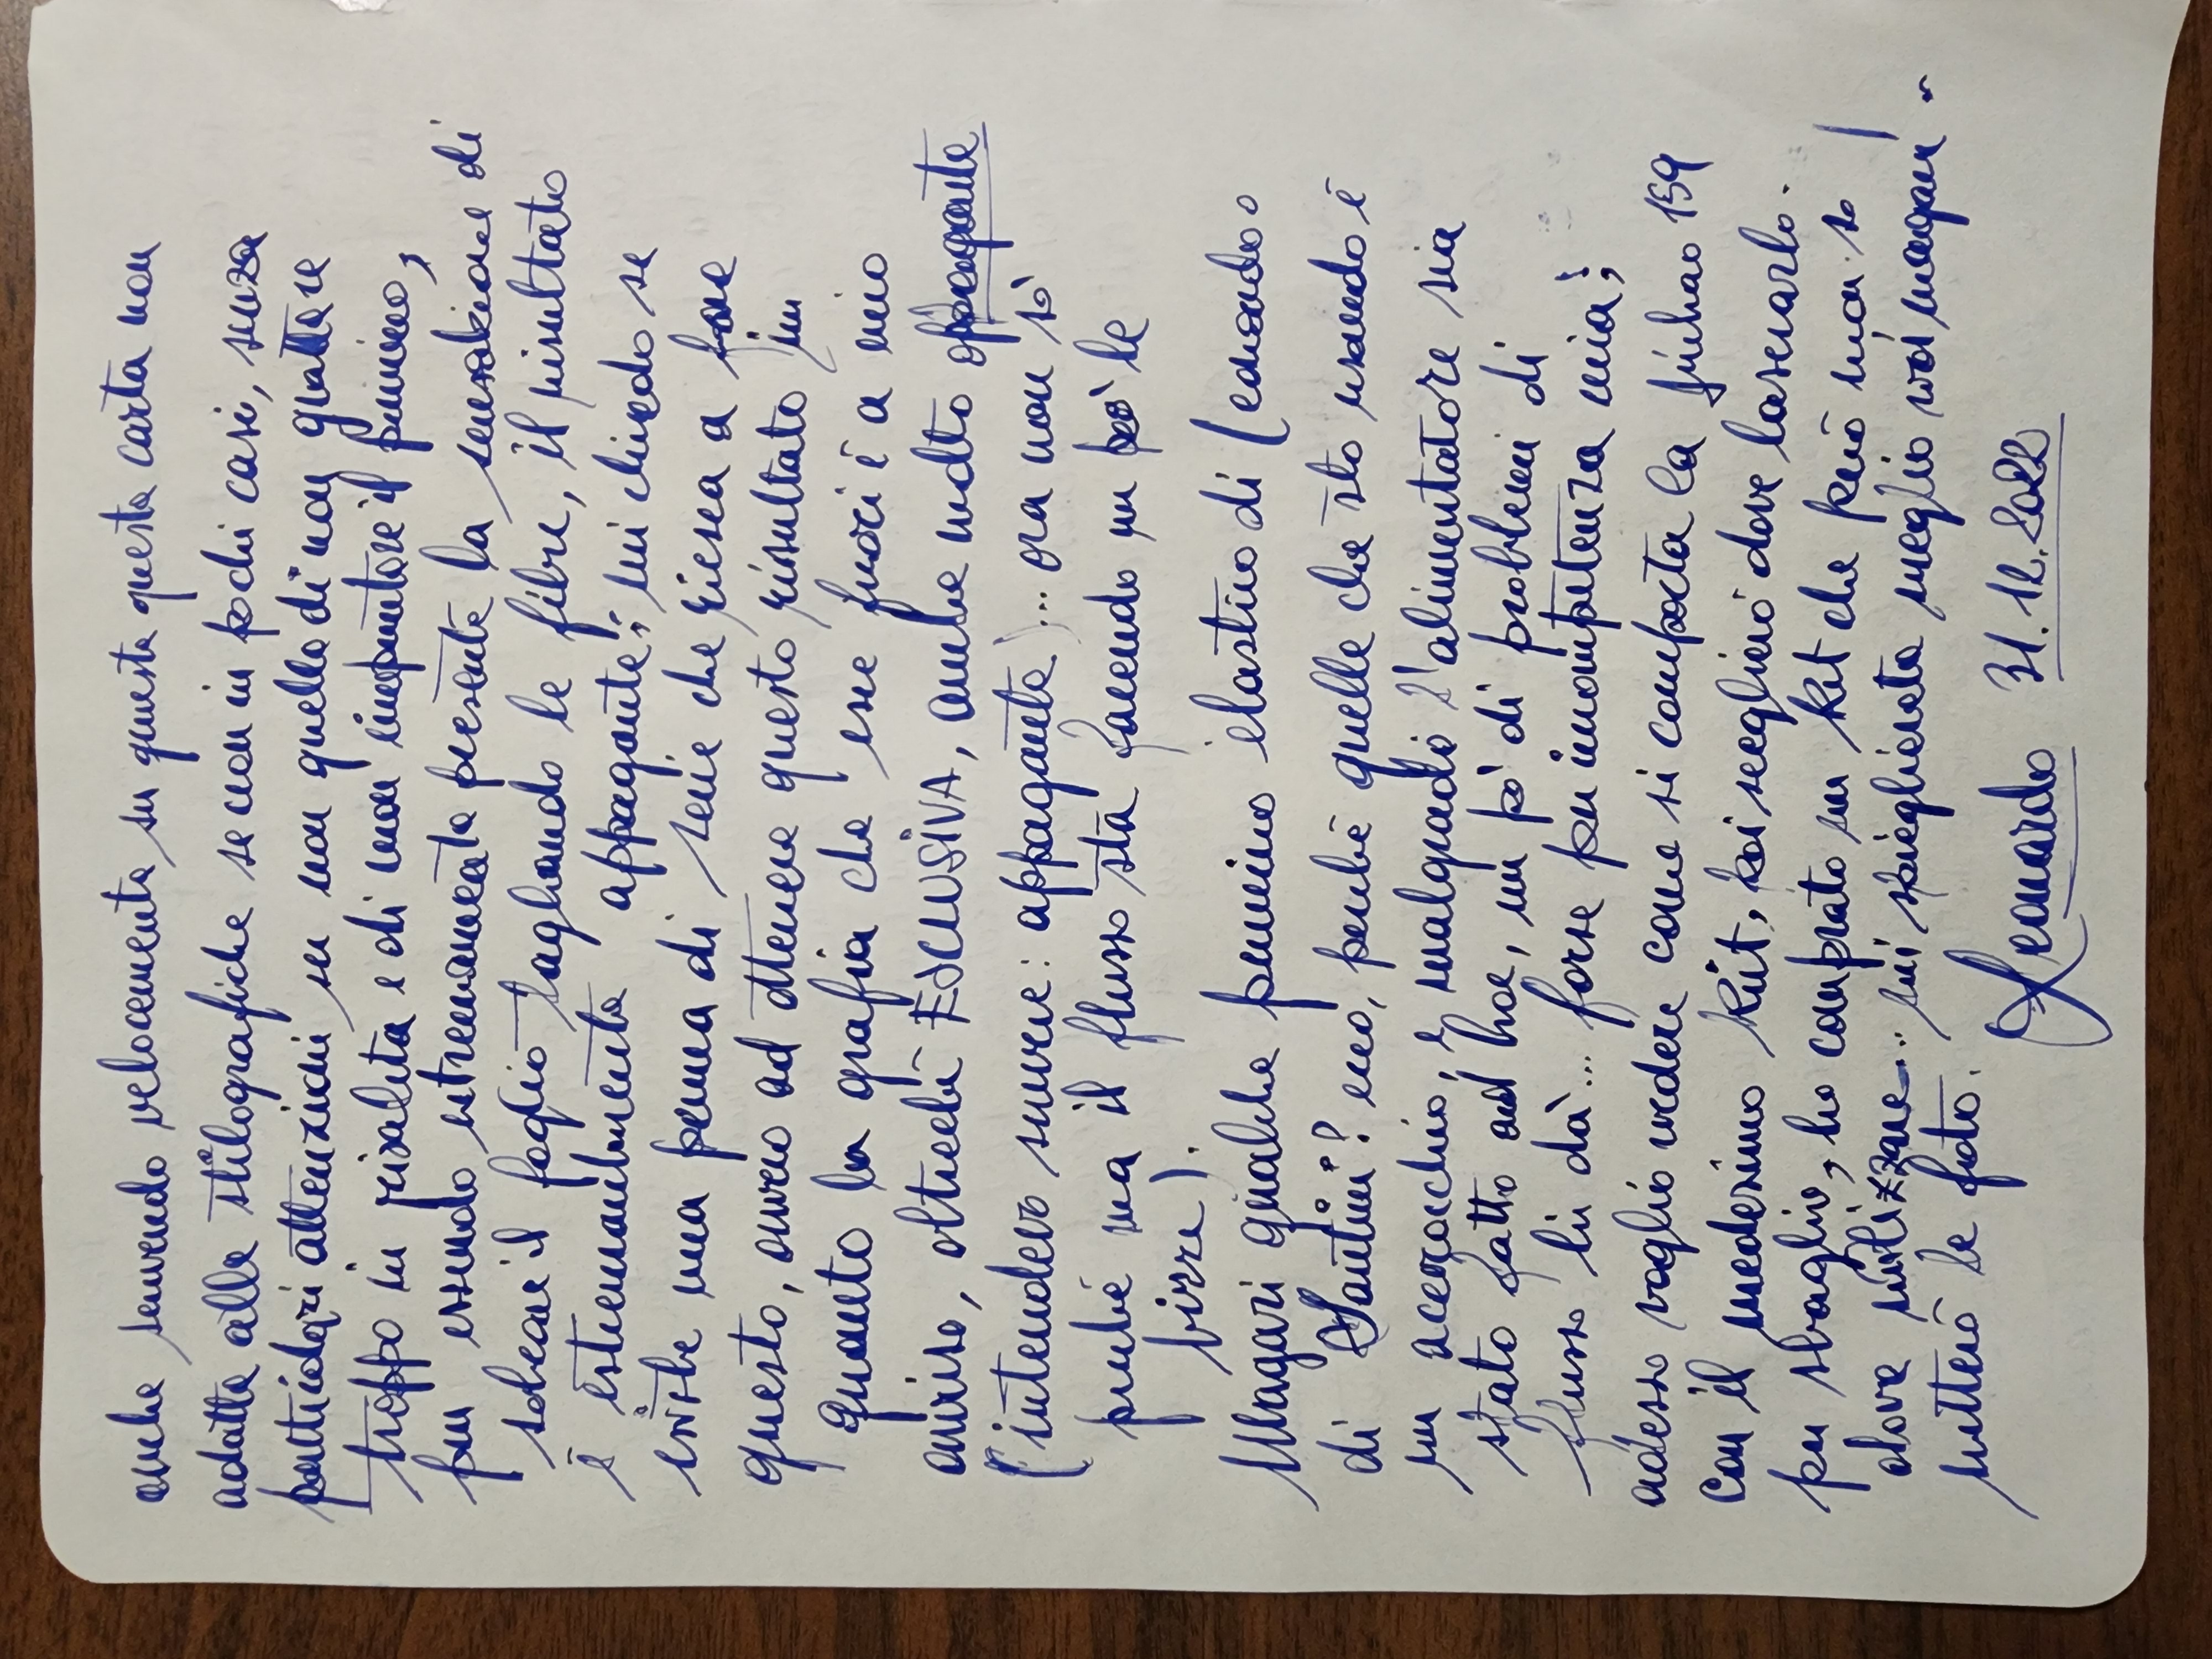 anche scrivendo velocemente su questa questa carta non
adatta alle stilografiche se non in pochi casi, senza
particolari attenzioni se non quello di non grattare
troppo in risalita e di non impuntare il pennino,
pur essendo estremamente presente la sensazione di
solcare il foglio tagliando le fibre, il risultato
è estremamente appagante; mi chiedo se
esiste una penna di serie che riesca a fare
questo, ovvero ad ottenere questo risultato in
quanto la grafia che esce fuori è a mio
avviso, oltreché ESCLUSIVA, anche molto appagante
(intendevo scrivere: appagante)... ora non sò
perché ma il flusso sta facendo un pò le
bizze).
Magari qualche pennino elastico di Leonardo o
di Santini? ecco, perché quello che sto usando è
un accrocchio, e malgrado l'alimentatore sia
stato fatto ad hoc, un pò di problemi di
flusso li dà... forse per incompetenza mia;
adesso voglio vedere come si comporta la jinhao 159
con il medesimo kit, poi sceglierò dove lasciarlo.
per sbaglio, ho comprato un kit che però non so
dove utilizzare... mi spiegherete meglio voi magari -
metterò le foto.
Leonardo 31.12.2022